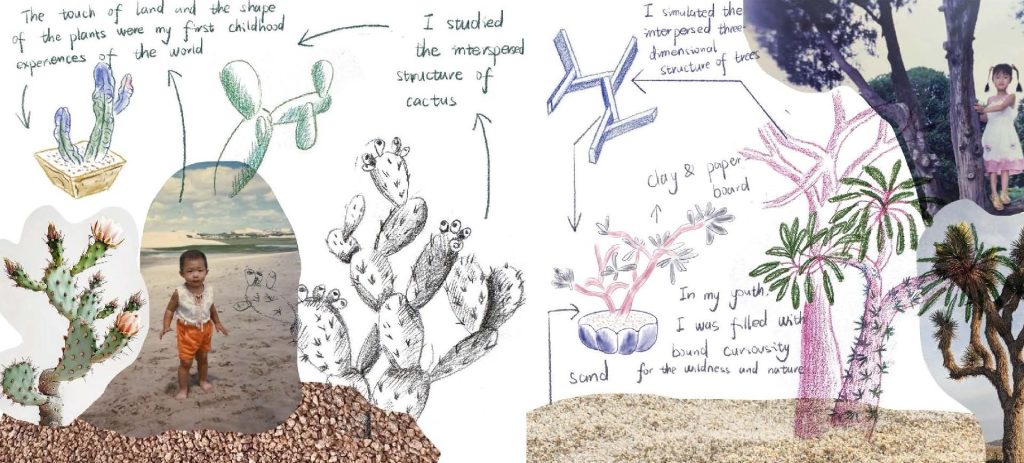 The touch of land and the shape
of the plants were my first childhood
experiences of the world
I studied
the interspered
structure of
cactus
I simulated the
interpersed three
dimensional
structure of trees
clay & paper
board
In my youth,
I was filled with
bound curiousity
for the wildness and nature
sand